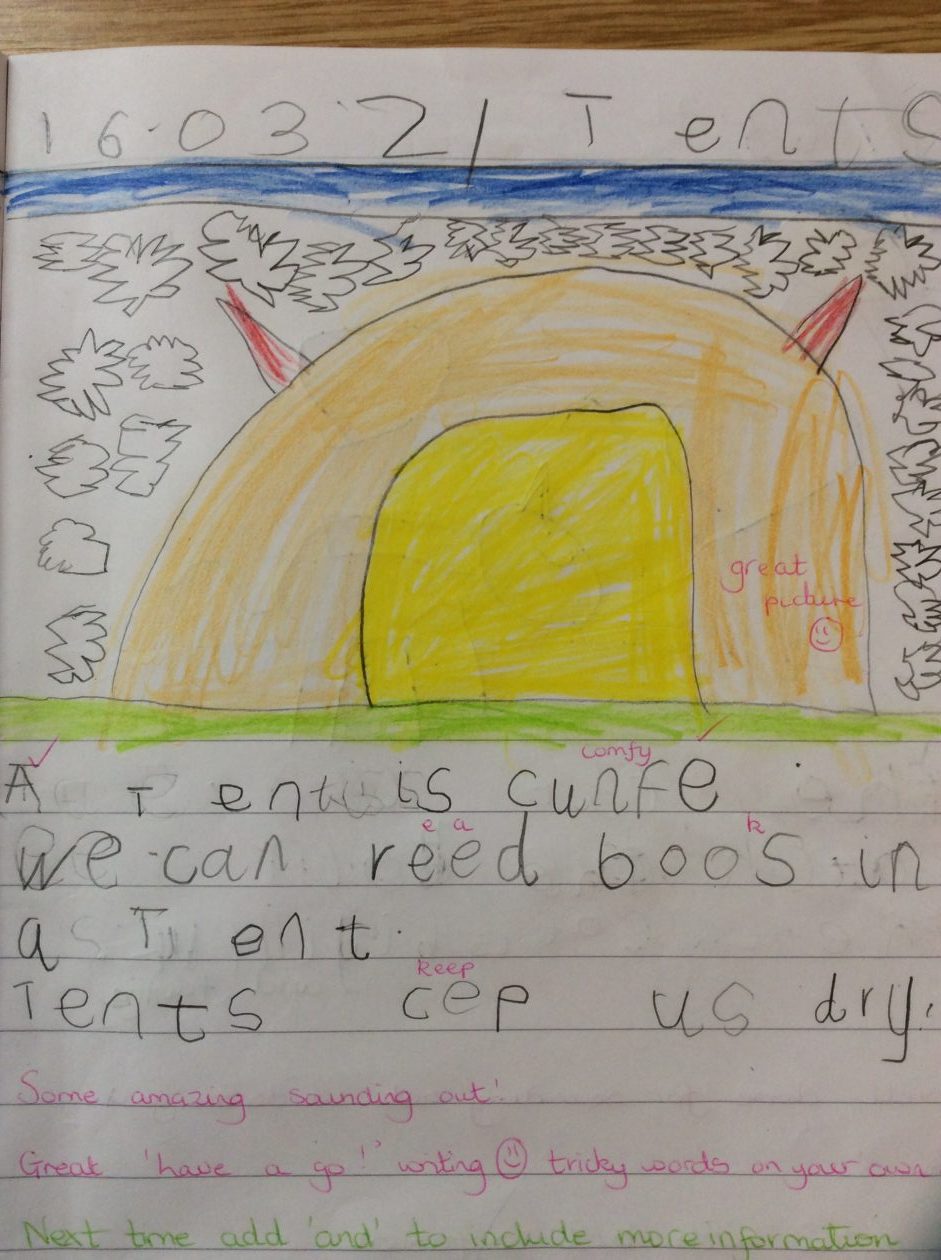 16.03.21 Tents
great
picture
comfy
A Tent is cunfe.
e a k
We can reed boos in
a Tent.
keep
Tents cep us dry.
Some amazing sounding out!
Great 'have a go!' writing tricky words on your own
Next time add 'and' to include more information